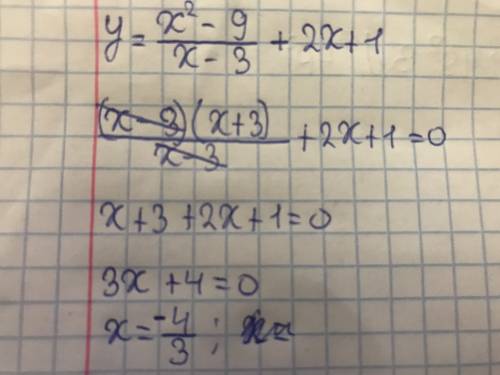 y = (x² - 9)/(x - 3) + 2x + 1
(x - 3)(x + 3)/(x - 3) + 2x + 1 = 0
x + 3 + 2x + 1 = 0
3x + 4 = 0
x = -4/3 ;